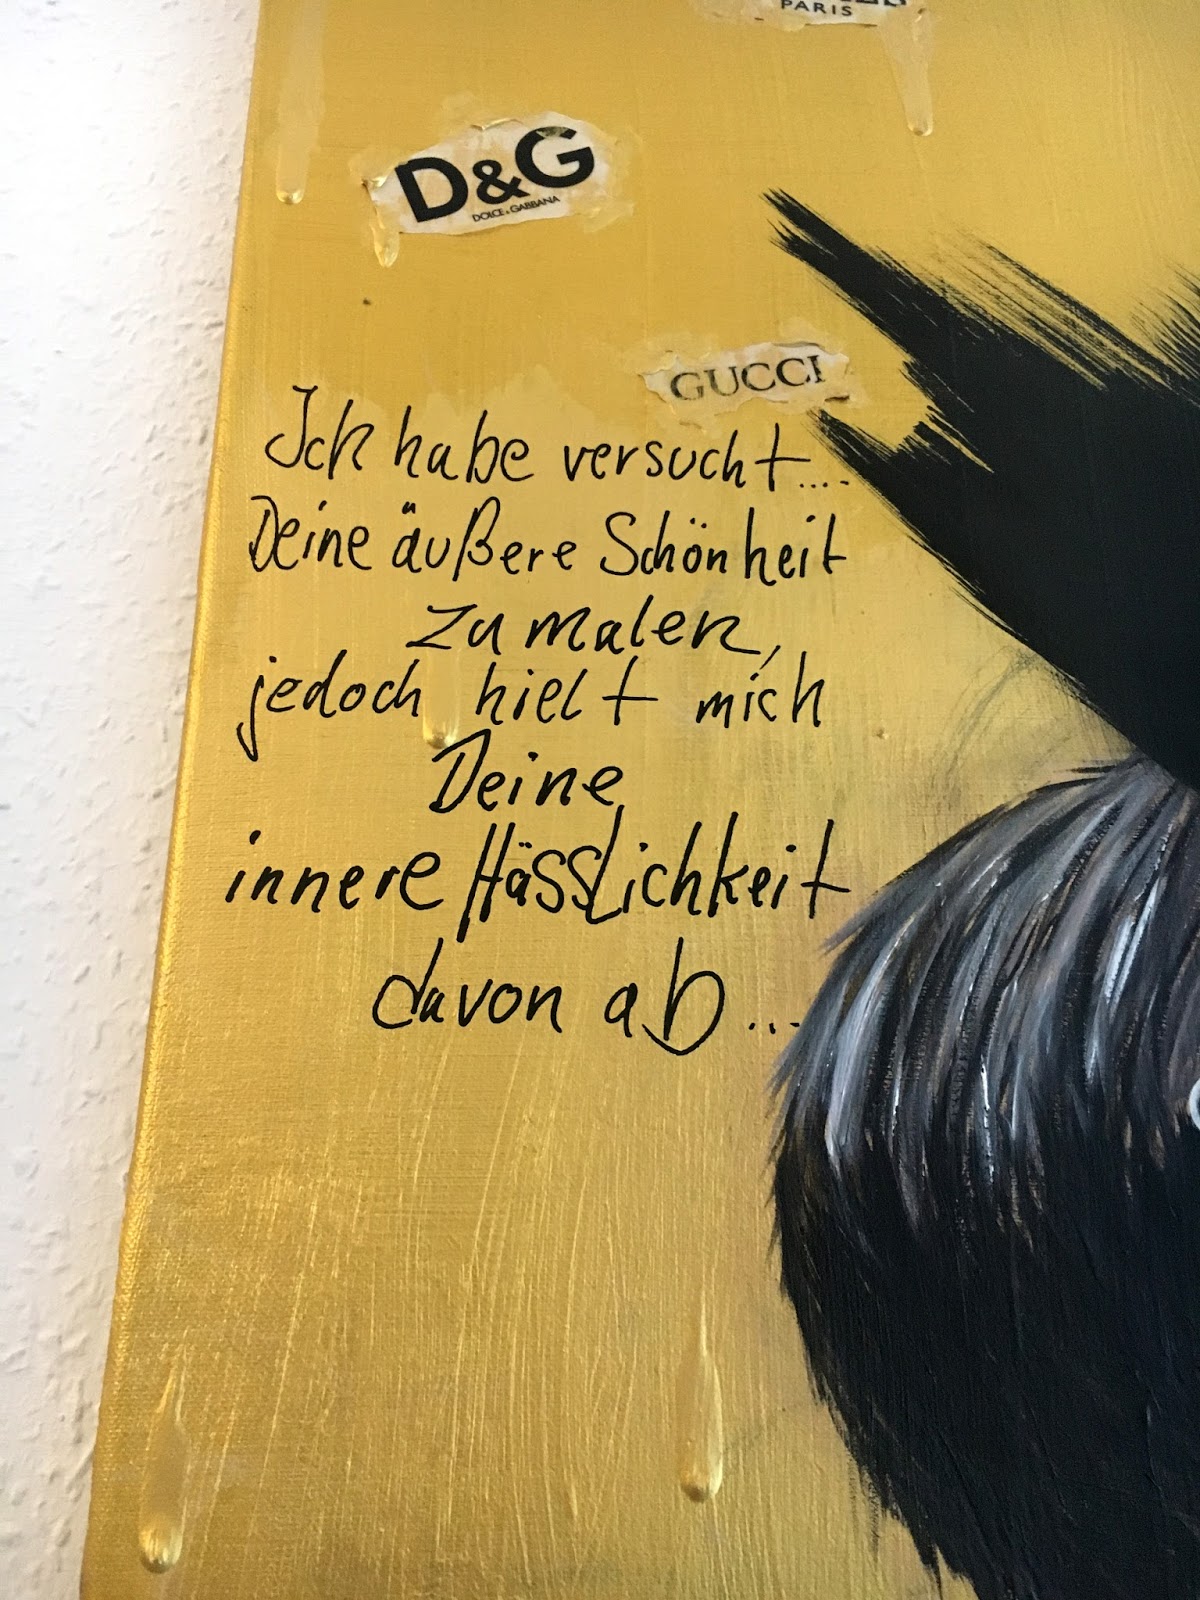 PARIS
D&G
DOLCE & GABBANA
GUCCI
Ich habe versucht....
Deine äußere Schönheit
zu malen,
jedoch hielt mich
Deine
innere Hässlichkeit
davon ab...